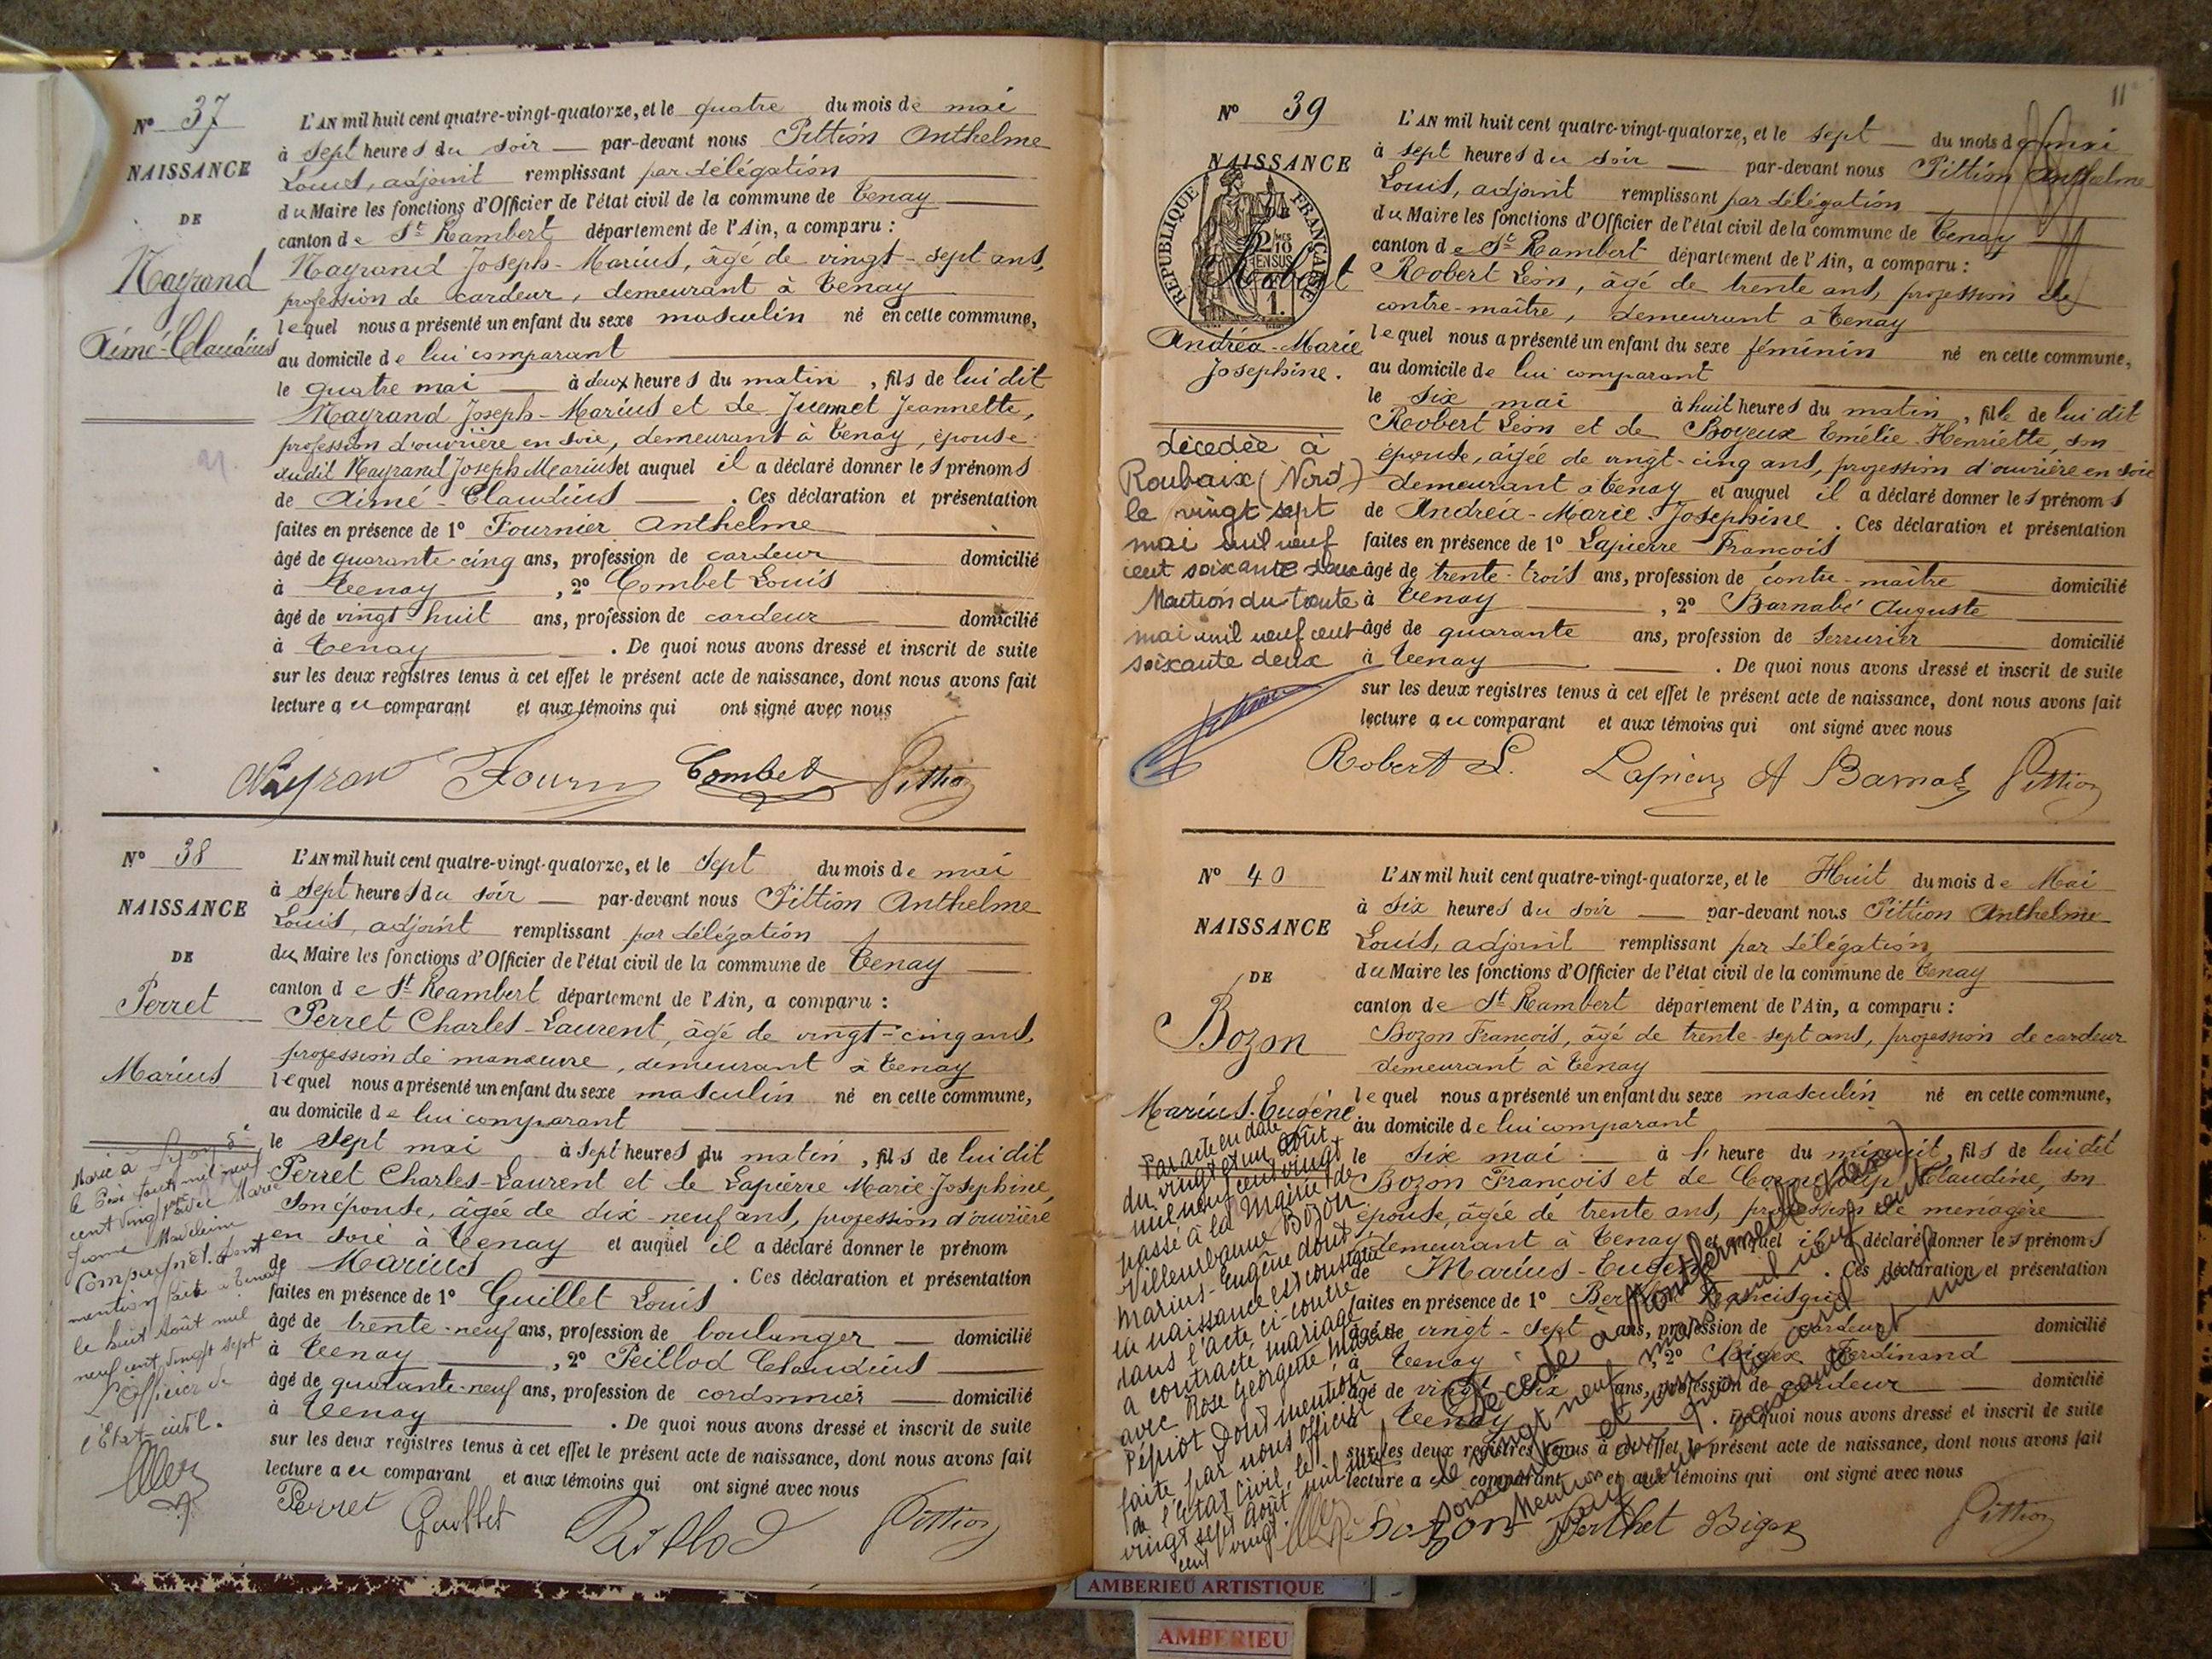 N° 37
NAISSANCE
DE
Nayrand
Aimé-Claudius
L'AN mil huit cent quatre-vingt-quatorze, et le quatre du mois de mai
à sept heures du soir par-devant nous Pittion Anthelme
Louis, adjoint remplissant par délégation
du Maire les fonctions d'Officier de l'état civil de la commune de Tenay
canton de St Rambert département de l'Ain, a comparu :
Nayrand Joseph-Marius, âgé de vingt-sept ans,
profession de cardeur, demeurant à Tenay
lequel nous a présenté un enfant du sexe masculin né en cette commune,
au domicile de lui comparant
le quatre mai à deux heures du matin, fils de lui dit
Nayrand Joseph-Marius et de Juemet Jeannette,
profession d'ouvrière en soie, demeurant à Tenay, épouse
dudit Nayrand Joseph Marius et auquel il a déclaré donner les prénoms
de Aimé-Claudius . Ces déclaration et présentation
faites en présence de 1° Fournier Anthelme
âgé de quarante-cinq ans, profession de cardeur domicilié
à Tenay , 2° Combet Louis
âgé de vingt huit ans, profession de cardeur domicilié
à Tenay . De quoi nous avons dressé et inscrit de suite
sur les deux registres tenus à cet effet le présent acte de naissance, dont nous avons fait
lecture au comparant et aux témoins qui ont signé avec nous
Nayrand Fourn Combet Pittion
N° 38
NAISSANCE
DE
Perret
Marius
Marié à Lyon 5e
cent vingt sept avec Marie
mention faite à Tenay
le huit août mil
neuf cent vingt sept
L'Officier de
l'Etat-civil.
L'AN mil huit cent quatre-vingt-quatorze, et le sept du mois de mai
à sept heures du soir par-devant nous Pittion Anthelme
Louis, adjoint remplissant par délégation
du Maire les fonctions d'Officier de l'état civil de la commune de Tenay
canton de St Rambert département de l'Ain, a comparu :
Perret Charles-Laurent, âgé de vingt-cinq ans,
profession de manœuvre, demeurant à Tenay
lequel nous a présenté un enfant du sexe masculin né en cette commune,
au domicile de lui comparant
le sept mai à sept heures du matin, fils de lui dit
Perret Charles-Laurent et de Lapierre Marie-Josephine,
son épouse, âgée de dix-neuf ans, profession d'ouvrière
en soie à Tenay et auquel il a déclaré donner le prénom
de Marius . Ces déclaration et présentation
faites en présence de 1° Guillet Louis
âgé de trente-neuf ans, profession de boulanger domicilié
à Tenay , 2° Peillod Claudius
âgé de quarante-neuf ans, profession de cordonnier domicilié
à Tenay . De quoi nous avons dressé et inscrit de suite
sur les deux registres tenus à cet effet le présent acte de naissance, dont nous avons fait
lecture au comparant et aux témoins qui ont signé avec nous
Perret Guillet Peillod Pittion
11
N° 39
NAISSANCE
DE
REPUBLIQUE FRANÇAISE
Robert
Andréa-Marie
Josephine.
décedée à
Roubaix (Nord)
le vingt sept
mai mil neuf
cent soixante deux
Mention du trente
mai mil neuf cent
soixante deux
L'AN mil huit cent quatre-vingt-quatorze, et le sept du mois de mai
à sept heures du soir par-devant nous Pittion Anthelme
Louis, adjoint remplissant par délégation
du Maire les fonctions d'Officier de l'état civil de la commune de Tenay
canton de St Rambert département de l'Ain, a comparu :
Robert Léon, âgé de trente ans, profession de
contre-maître, demeurant à Tenay
lequel nous a présenté un enfant du sexe féminin né en cette commune,
au domicile de lui comparant
le six mai à huit heures du matin, fille de lui dit
Robert Léon et de Boyeux Emélie-Henriette, son
épouse, âgée de vingt-cinq ans, profession d'ouvrière en soie
demeurant à Tenay et auquel il a déclaré donner les prénoms
de Andréa-Marie-Josephine . Ces déclaration et présentation
faites en présence de 1° Lapierre François
âgé de trente-trois ans, profession de contre-maître domicilié
à Tenay , 2° Barnabé Auguste
âgé de quarante ans, profession de serrurier domicilié
à Tenay . De quoi nous avons dressé et inscrit de suite
sur les deux registres tenus à cet effet le présent acte de naissance, dont nous avons fait
lecture au comparant et aux témoins qui ont signé avec nous
Robert L. Lapierre A Barnabé Pittion
N° 40
NAISSANCE
DE
Bozon
Marius-Eugène
Par acte en date
du vingt et un août
mil neuf cent vingt
passé à la Mairie de
Villeurbanne Bozon
Marius-Eugène dont
la naissance est constatée
dans l'acte ci-contre
a contracté mariage
avec Rose Georgette
dont mention
faite par nous officier
de l'état civil, le
vingt sept août mil neuf
cent vingt.
L'AN mil huit cent quatre-vingt-quatorze, et le Huit du mois de Mai
à six heures du soir par-devant nous Pittion Anthelme
Louis, adjoint remplissant par délégation
du Maire les fonctions d'Officier de l'état civil de la commune de Tenay
canton de St Rambert département de l'Ain, a comparu :
Bozon François, âgé de trente-sept ans, profession de cardeur
demeurant à Tenay
lequel nous a présenté un enfant du sexe masculin né en cette commune,
au domicile de lui comparant
le six mai à heure du minuit, fils de lui dit
Bozon François et de Claudine, son
épouse, âgée de trente ans, profession de ménagère
demeurant à Tenay et auquel il a déclaré donner les prénoms
de Marius-Eugène . Ces déclaration et présentation
faites en présence de 1° Francisque
âgé de vingt-sept ans, profession de cardeur domicilié
à Tenay , 2° Bigex Ferdinand
âgé de vingt-six ans, profession de cardeur domicilié
à Tenay . De quoi nous avons dressé et inscrit de suite
sur les deux registres tenus à cet effet le présent acte de naissance, dont nous avons fait
lecture au comparant et aux témoins qui ont signé avec nous
Décédé à Montfermeil
le vingt neuf mars mil neuf cent
soixante et un
Mention du quatre avril mil neuf
cent soixante et un
Bozon Berthet Bigex Pittion
AMBERIEU ARTISTIQUE
AMBERIEU